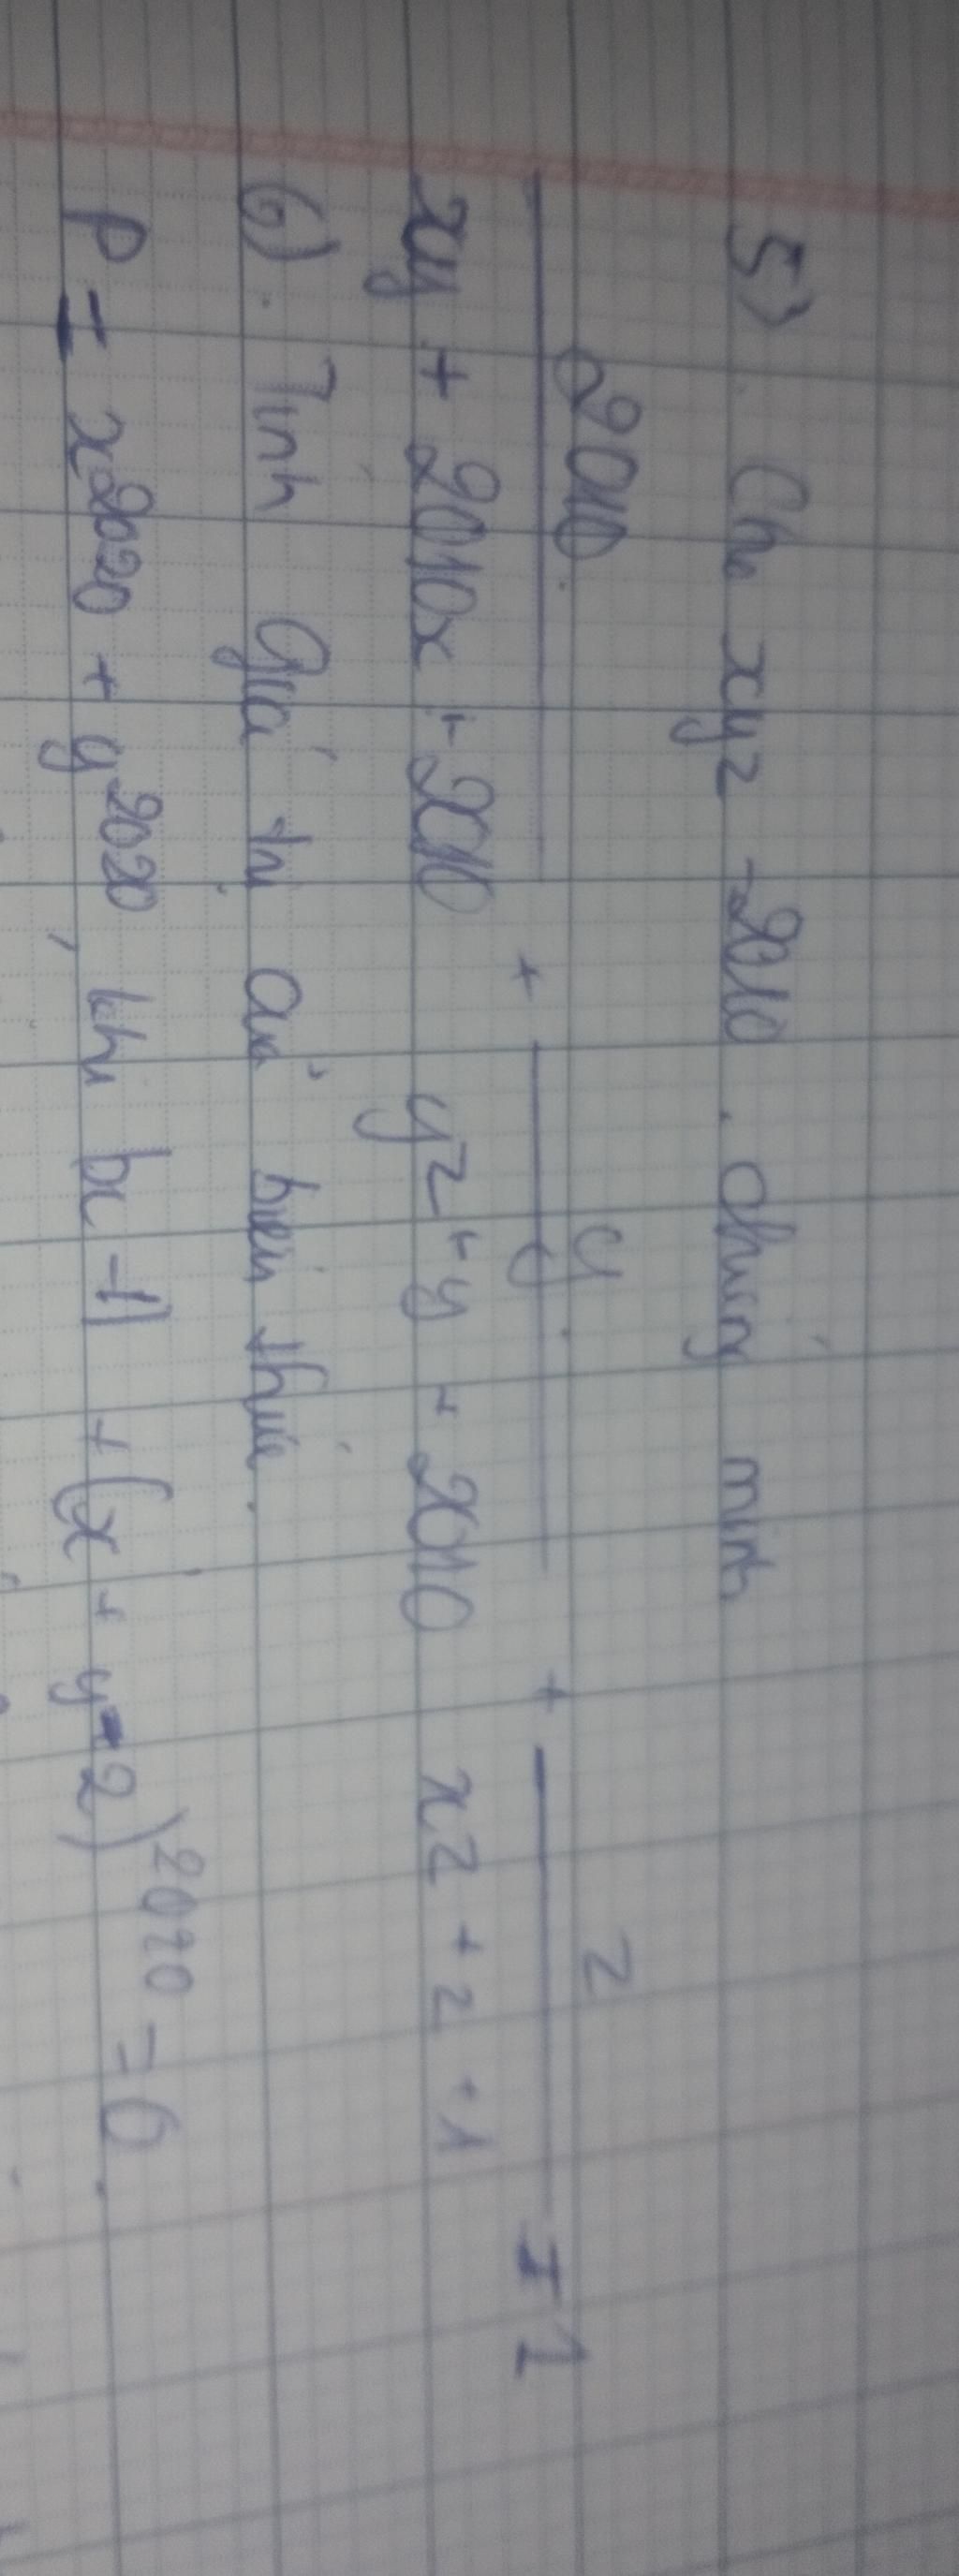 5) Cho xyz = 2010. Chứng minh
2010 / (xy + 2010x + 2010) + y / (yz + y + 2010) + z / (xz + z + 1) = 1
6). Tính Giá trị của biểu thức.
P = x^2020 + y^2020, khi |x - 1| + (x + y - 2)^2020 = 0.